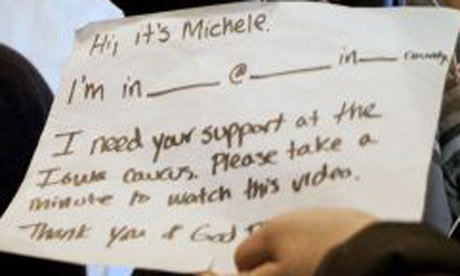 Hi, it's Michele.
I'm in ______ @ ______ in ____ county
I need your support at the
Iowa caucus. Please take a
minute to watch this video.
Thank you & God